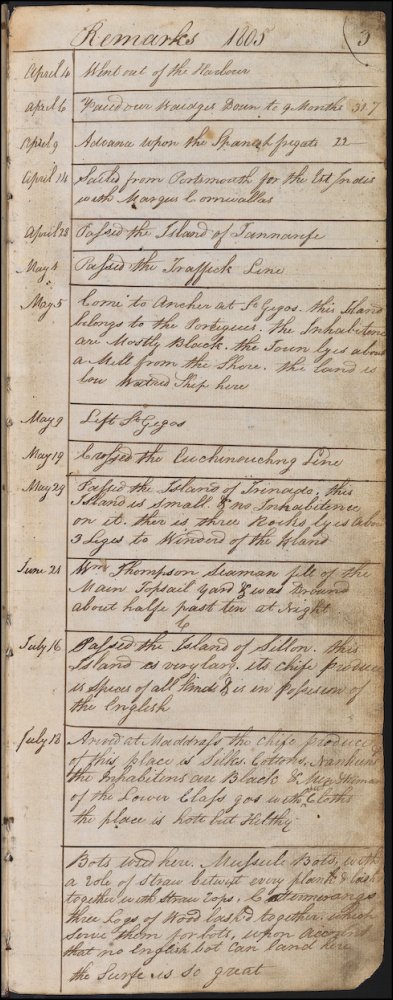 Remarks 1805 3
April 4 Went out of the Harbour
April 6 Paied our Waidges Down to 9 Months 31.7
April 9 Advance upon the Spanesh frigate 22
April 14 Sailed from Portsmouth for the Est Indies
with Marqus Cornwallas
April 28 Passed the Island of Tannarife
May 4 Passed the Traffick Line
May 5 Come to Ancher at St Gegos. this Island
belongs to the Portigues. the Inhabitene
are Mostly Black. the Town lyes about
a Mile from the Shore. the land is
low Watred Ship here
May 9 Left St Gegos
May 19 Crossed the Euchinouching Line
May 29 Passed the Island of Trinado. this
Island is small & no Inhabitence
on it. ther is three Rocks lyes About
3 Liges to Winderd of the Island
June 24 Wm Thompson Seaman fell of the
Main Topsail yard & was Dround
about halfe past ten at Night
July 16 Passed the Island of Sillon. this
Island is very larg. its chife produce
is Spices of all kinds & is in Possesion of
the English
July 18 Arived at Maddrass the chife produce
of this place is Silks. Cottons. Nankeens
the Inhabitens are Black &
of the Lower Class gos with out Cloths
the place is hote but Helthy
Bots used here. Mussule Bots, with
a role of Straw betwixt every plank & lashd
together with Straw Rops, & Catamerangs
three Logs of Wood lashd together, which
serve them for bots, upon Account
that no English bot Can land here
the Surfe is so great